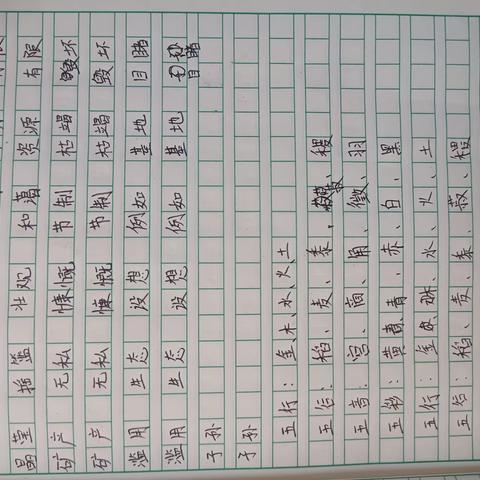 晶莹 摇篮 壮观 和蔼 资源 有限
矿产 无私 慷慨 节制 枯竭 毁坏
矿产 无私 慷慨 节制 枯竭 毁坏
滥用 生态 设想 例如 基地 目睹
滥用 生态 设想 例如 基地 目睹
子孙
子孙
五行：金、木、水、火、土
五谷：稻、麦、黍、菽、稷
五音：宫、商、角、徵、羽
五彩：黄、青、赤、白、黑
五行：金、木、水、火、土
五谷：稻、麦、黍、菽、稷